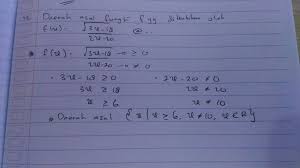 Daerah asal fungsi f yg ditentukan oleh
f(x) = √3x-18 / 2x-20 @..
• f(x) = √3x-18 → ≥ 0
2x-20 → ≠ 0
• 3x-18 ≥ 0 • 2x-20 ≠ 0
3x ≥ 18 2x ≠ 20
x ≥ 6 x ≠ 10
• Daerah asal {x | x ≥ 6, x ≠ 10, x ∈ R}